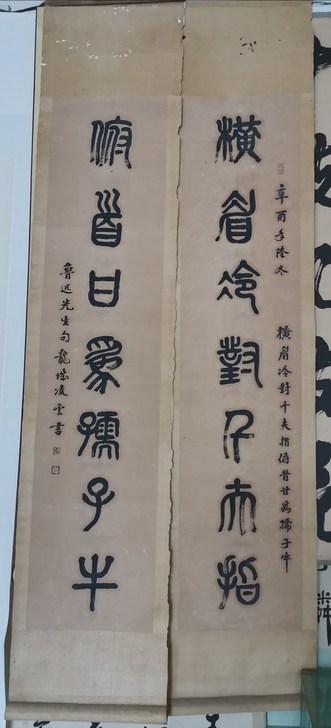 辛酉年隆冬
橫眉冷對千夫指俯首甘為孺子牛
橫眉冷對千夫指
俯首甘為孺子牛
魯迅先生句 龍凌雲書